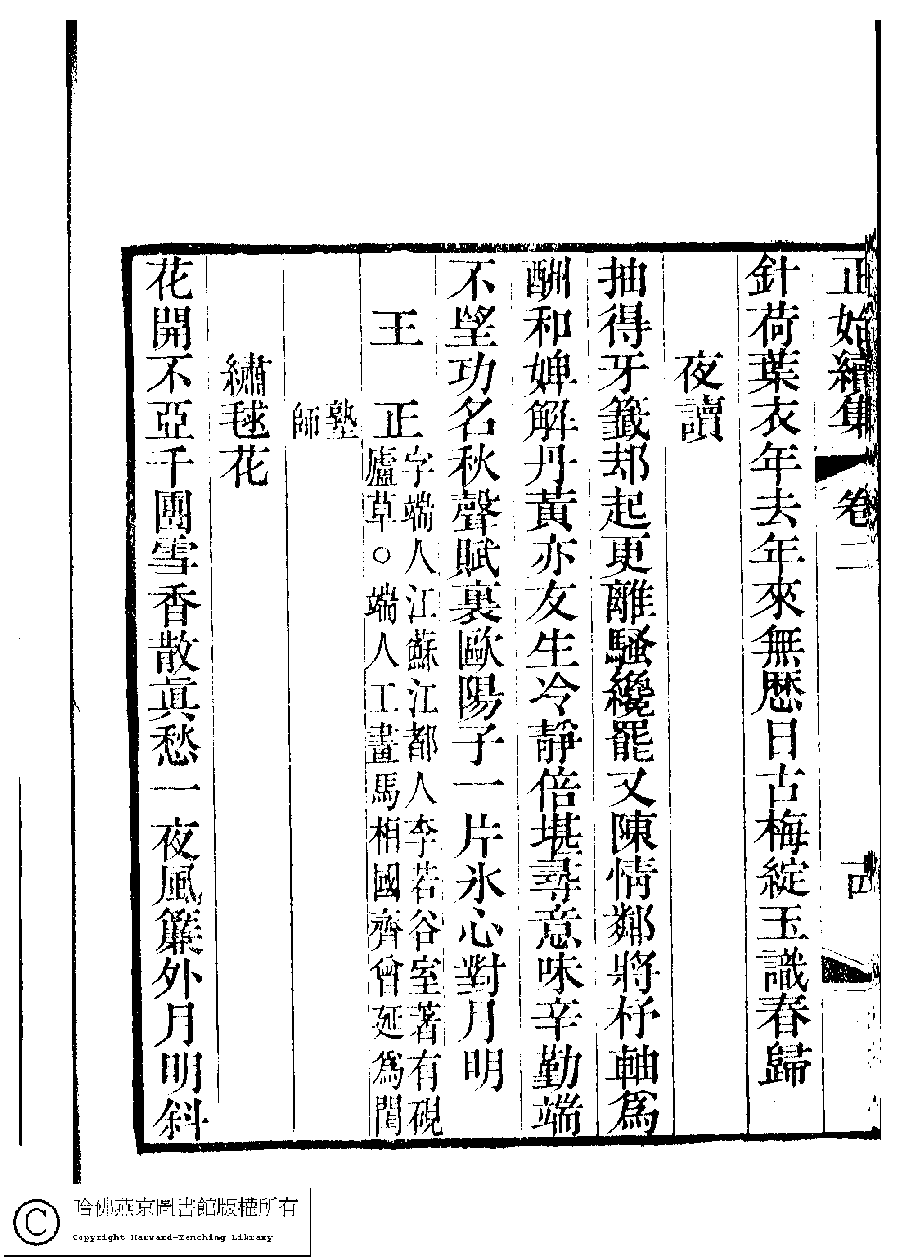 正始續集 卷二
針荷葉衣年去年來無歷日古梅綻玉識春歸
夜讀
抽得牙籤刼起更離騷纔罷又陳情鄰將杼軸爲
酬和婢解丹黃亦友生冷靜倍堪尋意味辛勤端
不望功名秋聲賦裏歐陽子一片氷心對月明
王正 字端人江蘇江都人李若谷室著有硯
廬草○端人工畫馬相國齊曾延爲閨
塾
師
繡毬花
花開不亞千團雪香散眞愁一夜風簾外月明斜
哈佛燕京圖書館版權所有
Copyright Harvard-Yenching Library